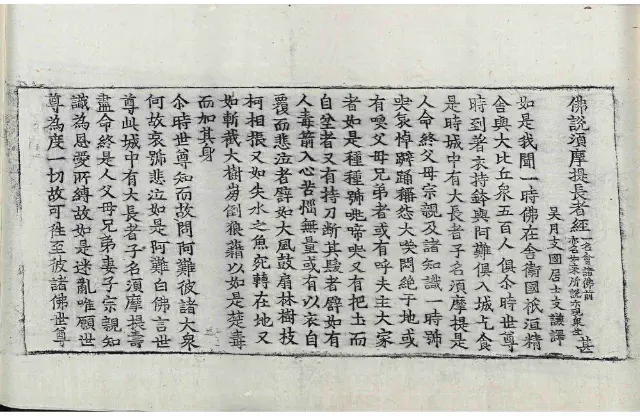 佛說須摩提長者經 一名會諸佛前 亦名如來所說示現眾生 甚
吳月支國居士支謙譯
如是我聞一時佛在舍衛國祇洹精
舍與大比丘眾五百人俱尒時世尊
時到著衣持鉢與阿難俱入城乞食
是時城中有大長者子名須摩提是
人命終父母宗親及諸知識一時號
哭哀悼躃踊稱怨大喚悶絕于地或
有喚父母兄弟者或有呼夫主大家
者如是種種號咷啼哭又有把土而
自坌者又有持刀斷其髮者譬如有
人毒箭入心苦惱無量或有以衣自
覆而悲泣者譬如大風鼓扇林樹枝
柯相振又如失水之魚宛轉在地又
如斬截大樹崩倒狼藉以如是楚毒
而加其身
尒時世尊知而故問阿難彼諸大衆
何故哀號悲泣如是阿難白佛言世
尊此城中有大長者子名須摩提壽
盡命終是人父母兄弟妻子宗親知
識為恩愛所縛故如是迷亂唯願世
尊為度一切故可往至彼諸佛世尊